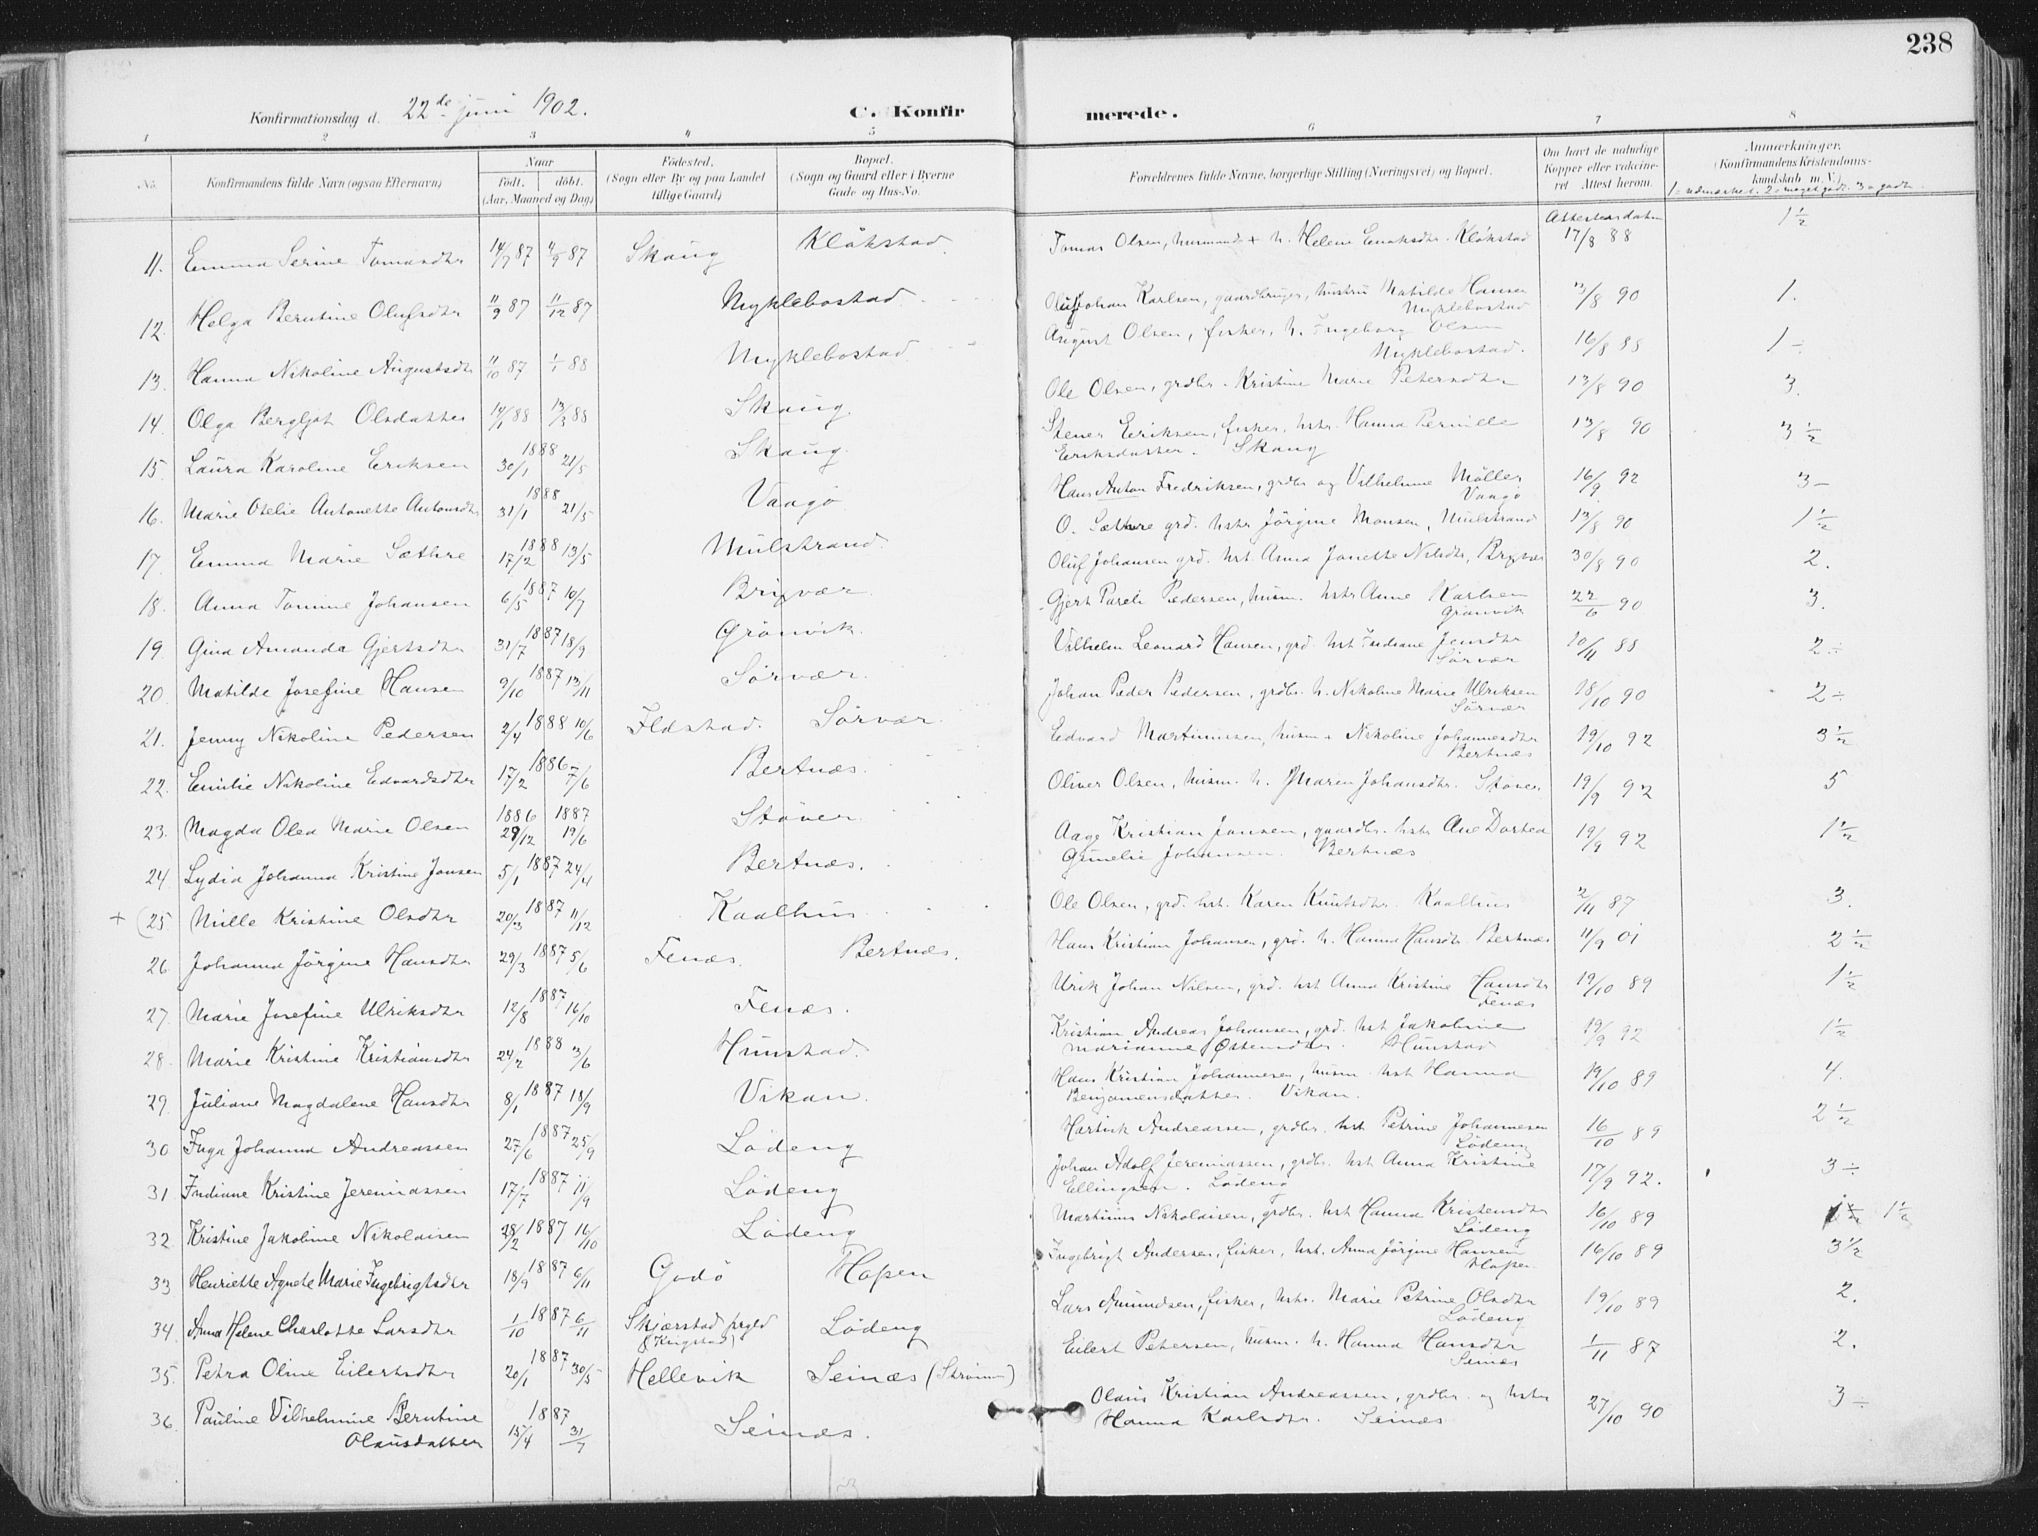 238
Konfirmationsdag d. 22de juni 1902. C. Konfir merede.
1 2 3 4 5 6 7 8
No. Konfirmandens fulde Navn (ogsaa Efternavn) Naar født. døbt. (Aar, Maaned og Dag) Fødested. (Sogn eller By og paa Landet tillige Gaard) Bopæl. (Sogn og Gaard eller i Byerne Gade og Hus-No. Forældrenes fulde Navne, borgerlige Stilling (Næringsvei) og Bopæl. Om havt de naturlige Kopper eller vakcineret Attest herom. Anmærkninger. (Konfirmandens Kristendomskundskab m. V.)
1 = udmærket. 2 = meget godt. 3 = godt.
Attestens datum
11. Emma Serine Tomasdtr 14/7 87 4/9 87 Skaug Kløkstad Tomas Olsen, husmand + h. Helene Enoksdtr. Kløkstad 17/8 88 1 1/2
12. Helga Berntine Olufsdtr 11/9 87 11/12 87 Myklebostad Oluf Johan Karlsen, gaardbruger, hustru Matilde Hansen Myklebostad 13/8 90 1.
13. Hanna Nikoline Augustsdtr 11/10 87 1/1 88 Myklebostad August Olsen, fisker, h. Ingeborg Olsen Myklebostad. 16/8 88 1 ÷
14. Olga Bergljot Olsdatter 14/1 88 13/3 88 Skaug. Ole Olsen, grdbr. Kristine Marie Petersdtr 13/8 90 3.
15. Laura Karoline Eriksen 1888 30/1 21/5 Skaug. Stener Eriksen, fisker, hstr. Hanna Pernille Eriksdatter. Skaug 13/8 90 3 1/2
16. Marie Otelie Antonette Antonsdtr 1888 31/1 21/5 Vaagø Hans Anton Fredriksen, grdbr og Vilhelmine Møller Vaagø 16/9 92 3-
17. Emma Marie Sæthre 1888 17/2 13/5 Mulstrand. O. Sæthre grd. hstr Jørgine Monsen, Mulstrand 13/8 90 1 1/2
18. Anna Tomine Johansen 1887 6/5 10/7 Brixvær Oluf Johansen grd. hst Anna Janette Nilsdtr, Brixvær 30/8 90 2.
19. Gina Amanda Gjertsdtr 1887 31/7 18/9 Grønvik. Gjert Pareli Pedersen, husm. hstr Anne Karlsen Grønvik 22/6 90 3.
20. Matilde Josefine Hansen 1887 9/10 13/11 Sørvær. Vilhelm Leonard Hansen, grd. hst Indiane Jensdtr Sørvær 20/11 88 2 ÷
21. Jenny Nikoline Pedersen 1888 2/4 10/6 Ildstad. Sørvær. Johan Peder Pedersen, grdbr. h. Nikoline Marie Ulriksen Sørvær 18/10 90 2 ÷
22. Emilie Nikoline Edvardsdtr 1886 17/2 7/6 Bertnæs. Edvard Martinussen, husm + Nikoline Johannesdtr Bertnæs 19/10 92 3 1/2
23. Magda Olea Marie Olsen 1886 29/12 1887 19/6 Støver. Oliver Olsen, husm. h. Maren Johansdtr. Støver 19/9 92 5
24. Lydia Johanna Kristine Jansen 1887 5/1 24/4 Bertnæs. Aage Kristian Jansen, gaardbr. hstr Ane Dortea Gunelie Johansen. Bertnæs 19/9 92 1 1/2
+ (25. Mille Kristine Olsdtr 1887 20/3 11/12 Kaalhus Ole Olsen, grd. hst. Karen Knutsdtr. Kaalhus 2/11 87 3.
26. Johanna Jørgine Hansdtr 1887 29/3 5/6 Fenæs. Bertnæs. Hans Kristian Johansen, grd. h. Hanna Hansdtr. Bertnæs 11/9 01 2 1/2
27. Marie Josefine Ulriksdtr 1887 12/8 16/10 Fenæs. Ulrik Johan Nilsen, grd. hst Anna Kristine Hansdtr Fenæs 19/10 89 1 1/2
28. Marie Kristine Kristiansdtr 1888 24/2 3/6 Hunstad. Kristian Andreas Johansen, grd. hst Jakobine Marianne Østensdtr. Hunstad 19/9 92 1 1/2
29. Juliane Magdalene Hansdtr 1887 8/1 18/9 Vikan. Hans Kristian Johannesen, husm. hst Hanna Benjamensdatter. Vikan. 19/10 89 4.
30 Inga Johanna Andreassen 1887 27/6 25/9 Lødeng Hartvik Andreassen, grdbr. hst Petrine Johannesen Lødeng 16/10 89 2 1/2
31. Indiane Kristine Jeremiassen 1887 17/7 11/9 Lødeng Johan Adolf Jeremiassen, grdbr. hst Anna Kristine Ellingsen. Lødeng 17/9 92. 3 ÷
32. Kristine Jakobine Nikolaisen 1887 28/2 16/10 Lødeng Martinus Nikolaisen, grdbr. hst Hanna Kristensdtr Lødeng 16/10 89 1 1/2
33 Henriette Agnete Marie Ingebrigtsdtr 1887 18/9 6/11 Godø Hopen Ingebrigt Andersen, fisker, hst. Anna Jørgine Hansen Hopen 16/10 89 3 1/2
34. Anna Helene Charlotte Larsdtr 1887 1/10 6/11 Skjærstad prgld Lødeng Lars Amundsen, fisker, hstr. Marie Petrine Olsdtr Lødeng 19/10 89 2.
35. Petra Oline Eilertsdtr 1887 20/1 30/5 Hellevik Seinæs (Strømm) Eilert Petersen, husm. h. Hanna Hansdtr Seinæs 1/11 87 2.
36 Pauline Vilhelmine Berntine Olausdatter 1887 15/4 31/7 Seinæs. Olaus Kristian Andreassen, grdbr. og hstr Hanna Karlsdtr. Seinæs 27/10 90 3 ÷